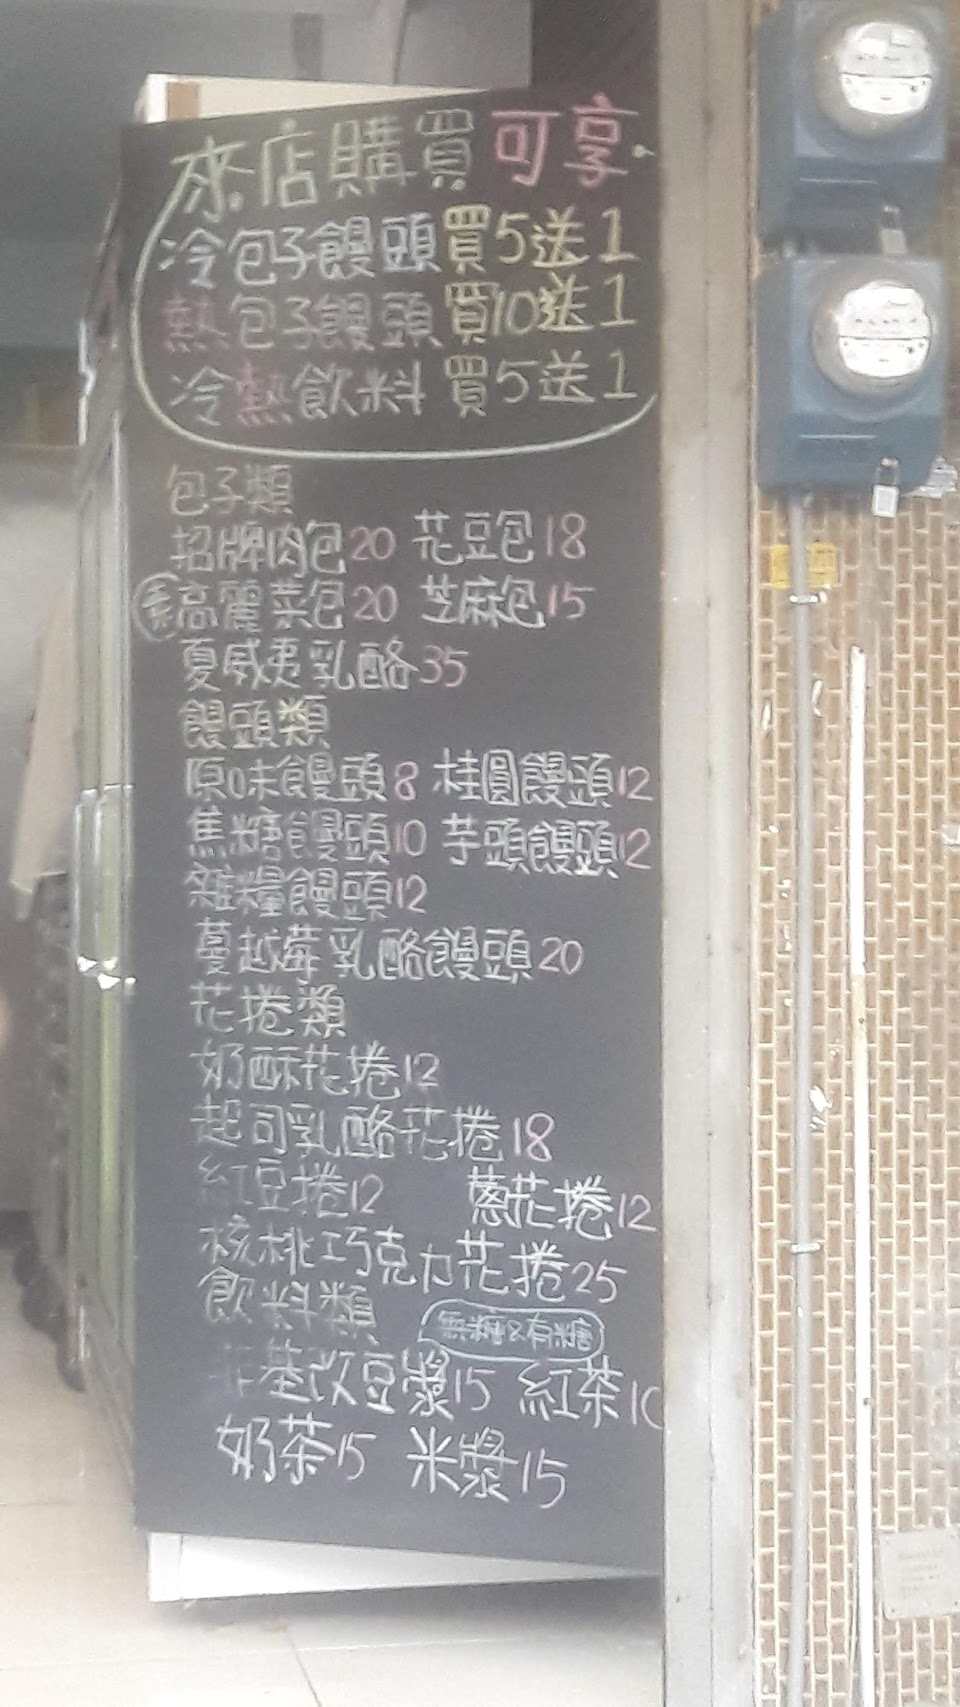 來店購買可享
冷包子饅頭買5送1
熱包子饅頭買10送1
冷熱飲料 買5送1
包子類
招牌肉包20 花豆包18
素高麗菜包20 芝麻包15
夏威夷乳酪35
饅頭類
原味饅頭8 桂圓饅頭12
焦糖饅頭10 芋頭饅頭12
雜糧饅頭12
蔓越莓乳酪饅頭20
花捲類
奶酥花捲12
起司乳酪花捲18
紅豆捲12 蔥花捲12
核桃巧克力花捲25
飲料類
無糖&有糖
非基改豆漿15 紅茶10
奶茶15 米漿15